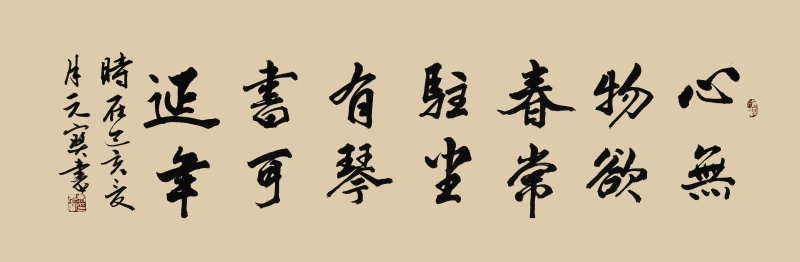 心無
物欲
春常
駐坐
有琴
書可
延年
時在己亥夏
月元寅書